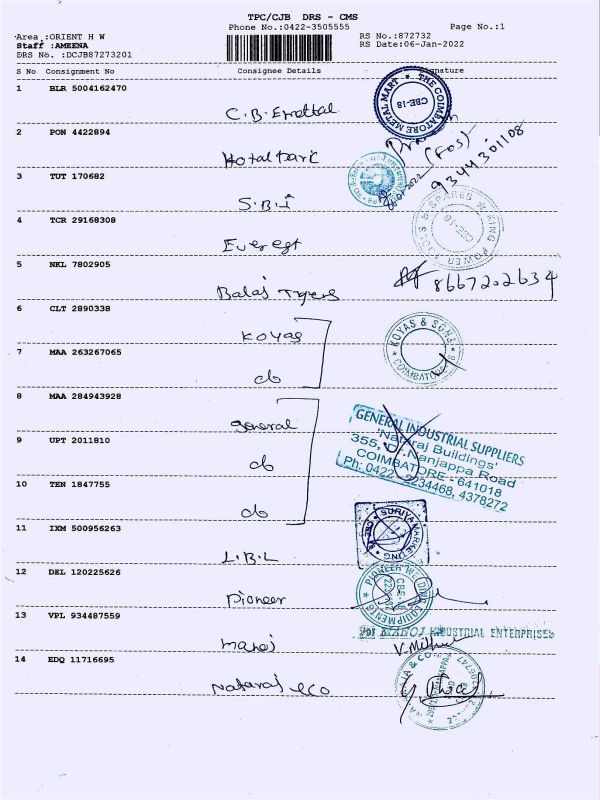 TPC/CJB DRS - CMS
Phone No.:0422-3505555
Page No.:1
Area :ORIENT H W
RS No.:872732
Staff :AMEENA
RS Date:06-Jan-2022
DRS No. :DCJB87273201
S No Consignment No Consignee Details Signature
1 BLR 5004162470
C.B.
THE COIMBATORE METAL MART
CBE-18
2 PON 4422894
Hotal Park
(FOS)
9344301108
3 TUT 170682
S.B.I
4 TCR 29168308
Everest
KING POWER & SPARES
CBE-18
5 NKL 7802905
Balaj Tyres
8667202634
6 CLT 2890338
Koyas
KOYAS & SONS
COIMBATORE
7 MAA 263267065
do
8 MAA 284943928
general
GENERAL INDUSTRIAL SUPPLIERS
'Nataraj Buildings'
355, Nanjappa Road
COIMBATORE - 641018
Ph: 0422 - 2234468, 4378272
9 UPT 2011810
do
10 TEN 1847755
do
11 IXM 500956263
L.B.L
SURIYA MARKETING
12 DEL 120225626
Pioneer
PIONEER WELDING EQUIPMENTS
13 VPL 934487559
manoj
MANOJ INDUSTRIAL ENTERPRISES
14 EDQ 11716695
Nataraj &co